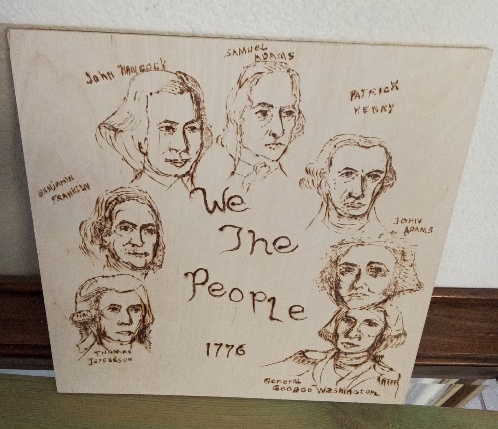 SAMUEL
ADAMS
John HANCOCK
PATRICK
HENRY
BENJAMIN
FRANKLIN
We
The
People
JOHN
ADAMS
1776
THOMAS
JEFFERSON
General
GEORGE WASHINGTON